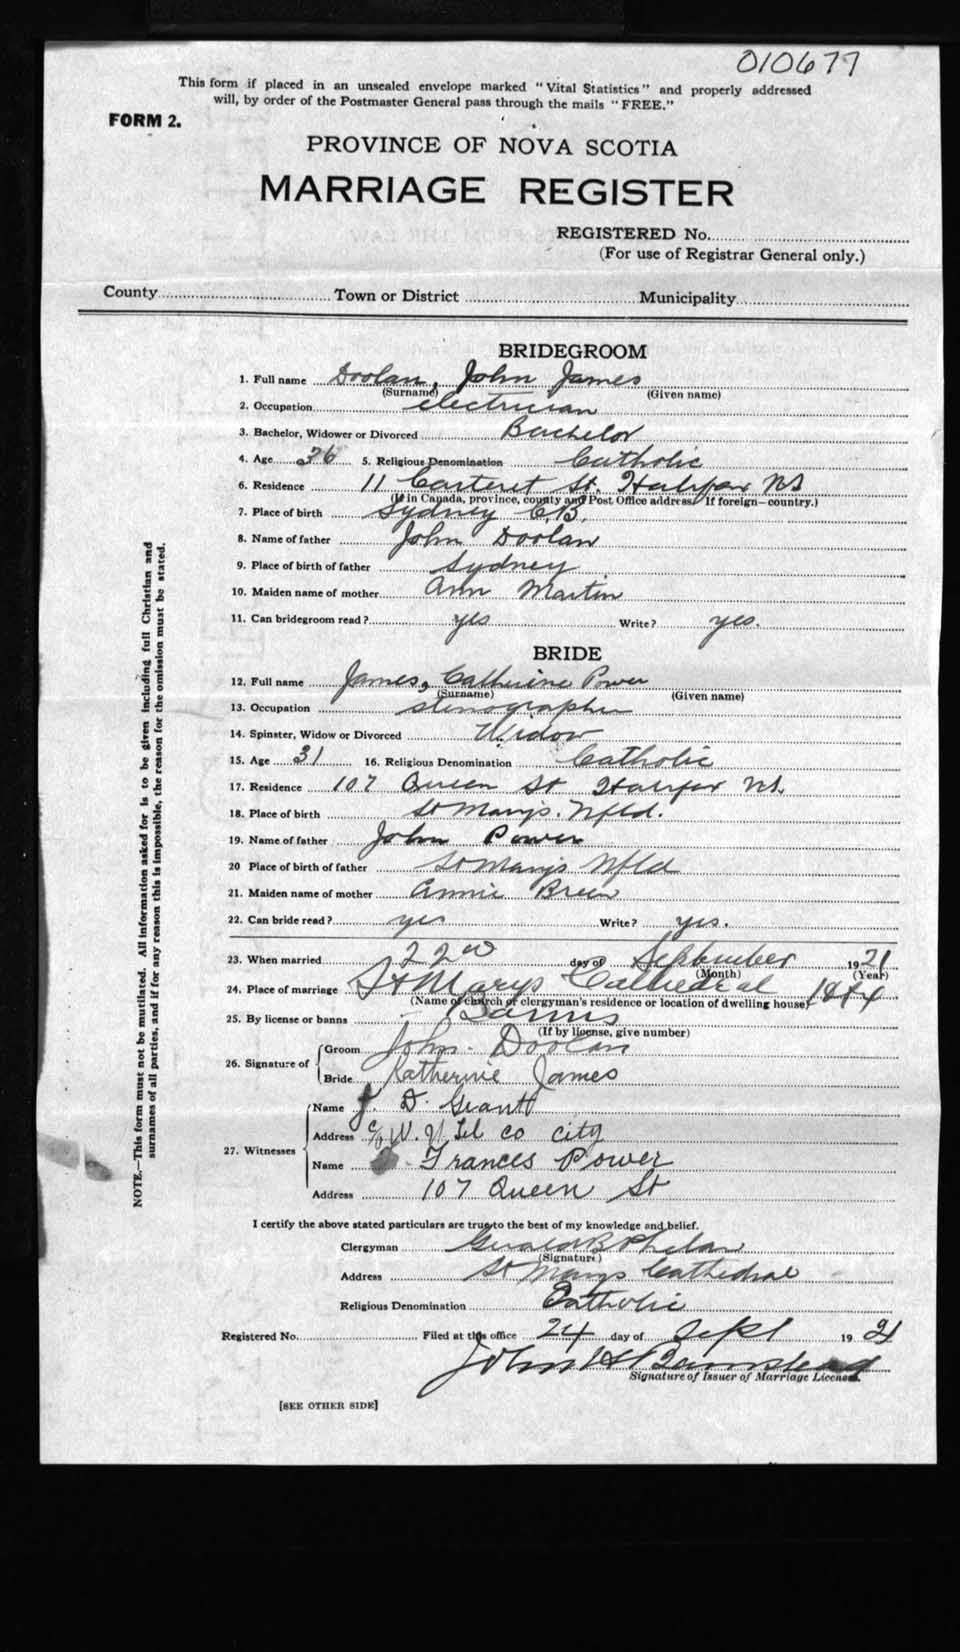 010677
This form if placed in an unsealed envelope marked "Vital Statistics" and properly addressed
will, by order of the Postmaster General pass through the mails "FREE."
FORM 2.
PROVINCE OF NOVA SCOTIA
MARRIAGE REGISTER
REGISTERED No.
(For use of Registrar General only.)
County Town or District Municipality
BRIDEGROOM
1. Full name Doolan, John James
(Surname) (Given name)
2. Occupation electrician
3. Bachelor, Widower or Divorced Bachelor
4. Age 36 5. Religious Denomination Catholic
6. Residence 11 Carteret St. Halifax NS
(If in Canada, province, county and Post Office address. If foreign—country.)
7. Place of birth Sydney C.B.
8. Name of father John Doolan
9. Place of birth of father Sydney
10. Maiden name of mother Ann Martin
11. Can bridegroom read? yes Write? yes.
BRIDE
12. Full name James, Catherine Power
(Surname) (Given name)
13. Occupation stenographer
14. Spinster, Widow or Divorced Widow
15. Age 31 16. Religious Denomination Catholic
17. Residence 107 Queen St Halifax NS.
18. Place of birth St Marys. Nfld.
19. Name of father John Power
20 Place of birth of father St Marys Nfld
21. Maiden name of mother Annie Breen
22. Can bride read? yes Write? yes.
23. When married 22nd day of September 1921
(Month) (Year)
24. Place of marriage St Marys Cathedral
(Name of church or clergyman's residence or location of dwelling house)
25. By license or banns Banns
(If by license, give number)
26. Signature of Groom John Doolan
Bride Katherine James
27. Witnesses Name J. D. Grant
Address c/o W. U Tel Co City
Name Frances Power
Address 107 Queen St
I certify the above stated particulars are true to the best of my knowledge and belief.
Clergyman Gerald B Phelan
(Signature)
Address St Marys Cathedral
Religious Denomination Catholic
Registered No. Filed at this office 24 day of Sept 1921
John H Barnstead
Signature of Issuer of Marriage Licenses.
[SEE OTHER SIDE]
NOTE.—This form must not be mutilated. All information asked for is to be given including full Christian and
surnames of all parties, and if for any reason this is impossible, the reason for the omission must be stated.